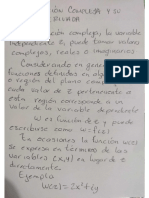 CIÓN COMPLEJA Y SU
RIVADA
complejo, la variable
independiente z puede tomar valores
complejos, reales o imaginarios
Considerando en general
funciones definidas en alguna
región del plano complejo
cada valor de z perteneciente a
esta región corresponde a un
valor de la variable dependiente
W es función de z y puede
escribirse como W = f(z)
En ocasiones la función w(z)
se expresa en términos de las
variables (x,y) en lugar de z
directamente.
Ejemplo